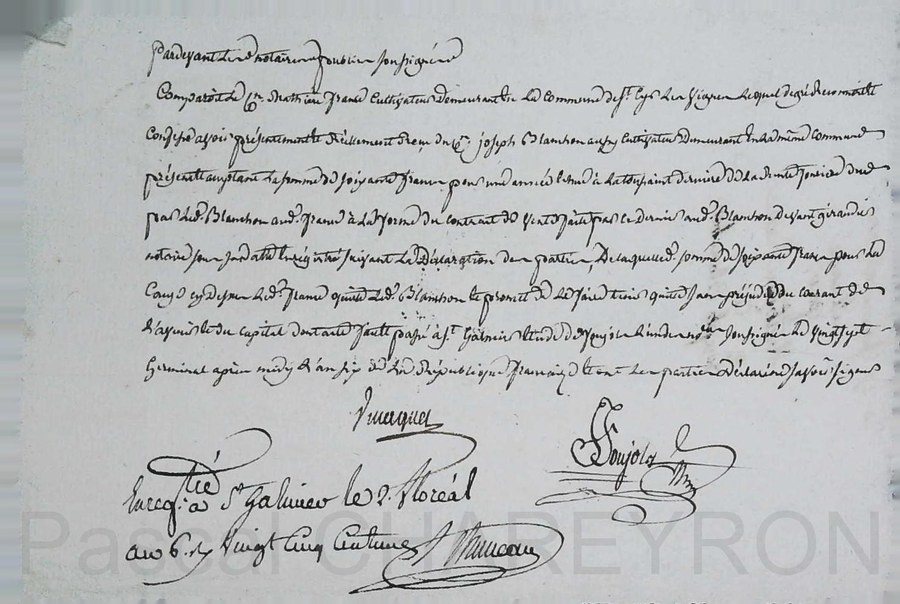 Pardevant les notaires publics soussignés
Comparoit le Cn. Mathieu france Cultivateur demeurant en la Commune de St. Cyr les Vignes lequel degré reconnoit &
Confesse avoir présentement & réellement reçu du Cn. joseph Blanchon aussy Cultivateur demeurant en la même Commune
présent acceptant la somme de soixante francs pour une année échue à la toussaint derniere de la rente fonciere due
par led. Blanchon aud. france à la forme du contrat de vente fait par ce dernier aud. Blanchon devant
notaire sous sa datte enrégistré suivant la déclaration des parties, de laquelle d. somme de soixante francs pour la
Cause cy dessus led. france quitte led. Blanchon & promet de le faire tenir quitte sans préjudice du courant de
& du capital dont acte fait & passé à St. Galmier étude de Soujols l'un des nres. soussignés le vingt sept
Germinal après midy l'an six de la République française & ont les parties déclaré ne savoir signer
Soujols
Enregtré à St Galmier le 2 floréal
an 6. r. Vingt Cinq Centimes
Pascal CHAREYRON